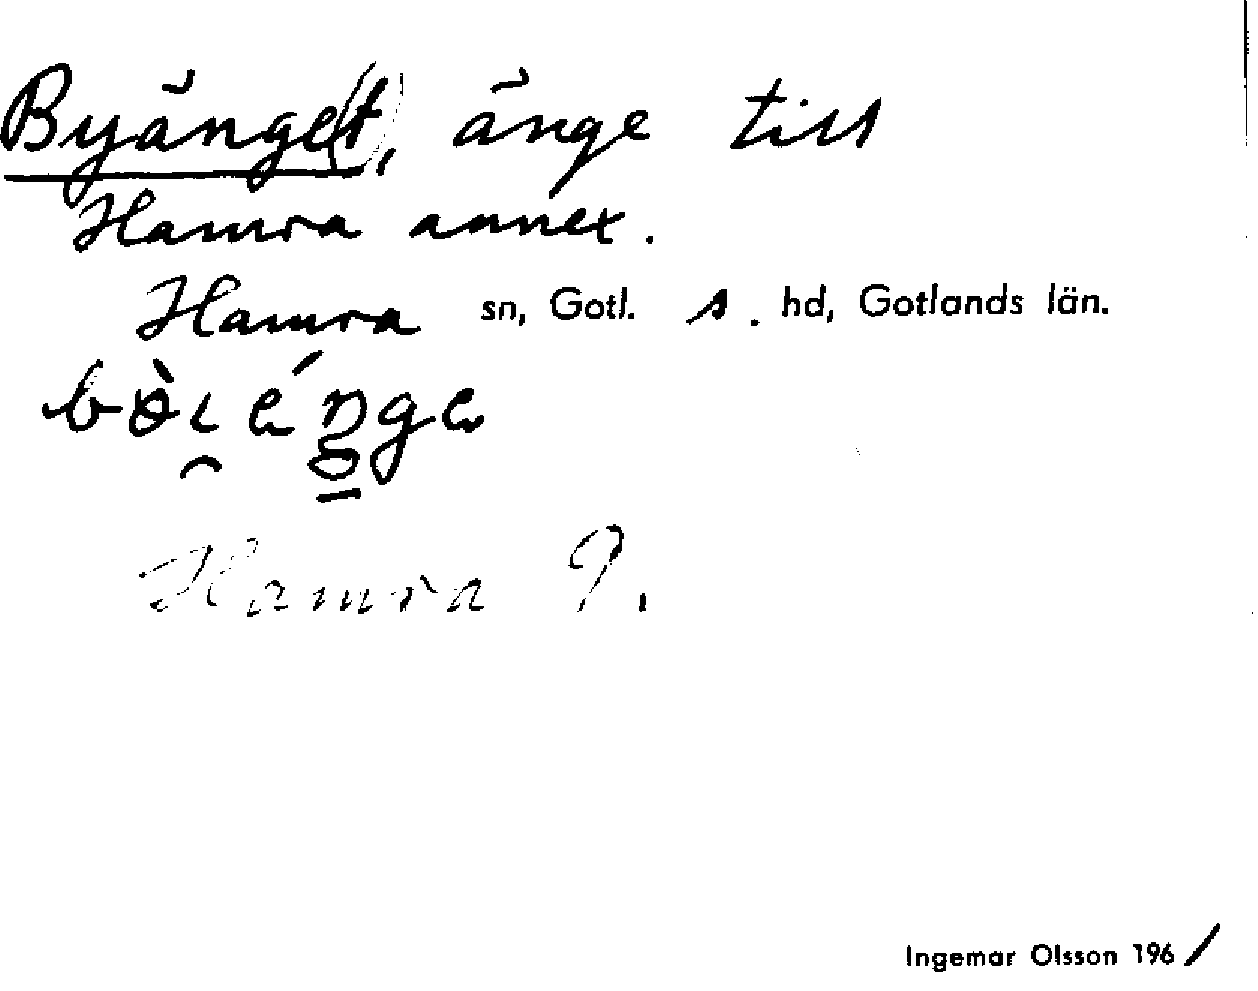 Byänge(t), änge till
Hamra annex.
Hamra sn, Gotl. s. hd, Gotlands län.
Hamra 9.
Ingemar Olsson 1961